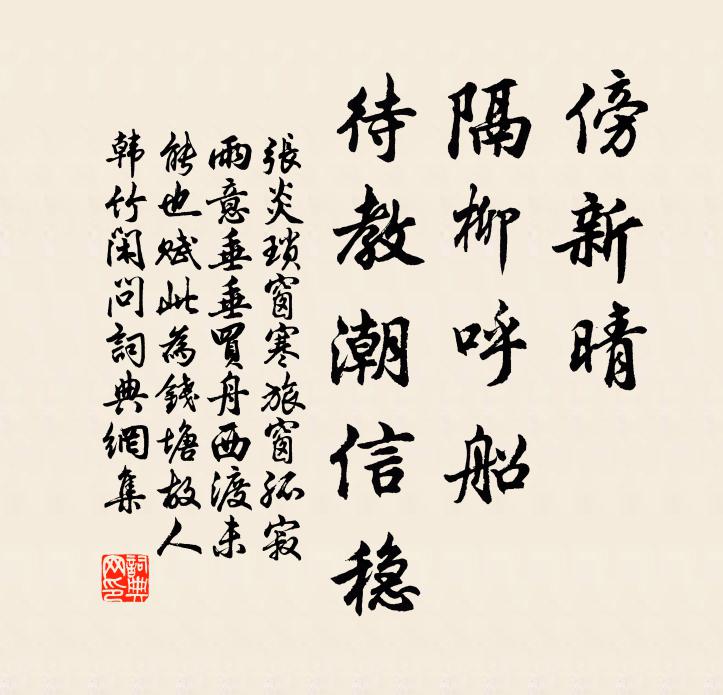 傍新晴
隔柳呼船
待教潮信稳
張炎瑣窗寒旅窗孤寂
雨意垂垂買舟西渡未
能也賦此為錢塘故人
韩竹閑問詞典網集
詞典
网印